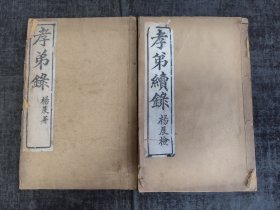 孝弟錄
楊晨著
孝弟續錄
楊晨檢